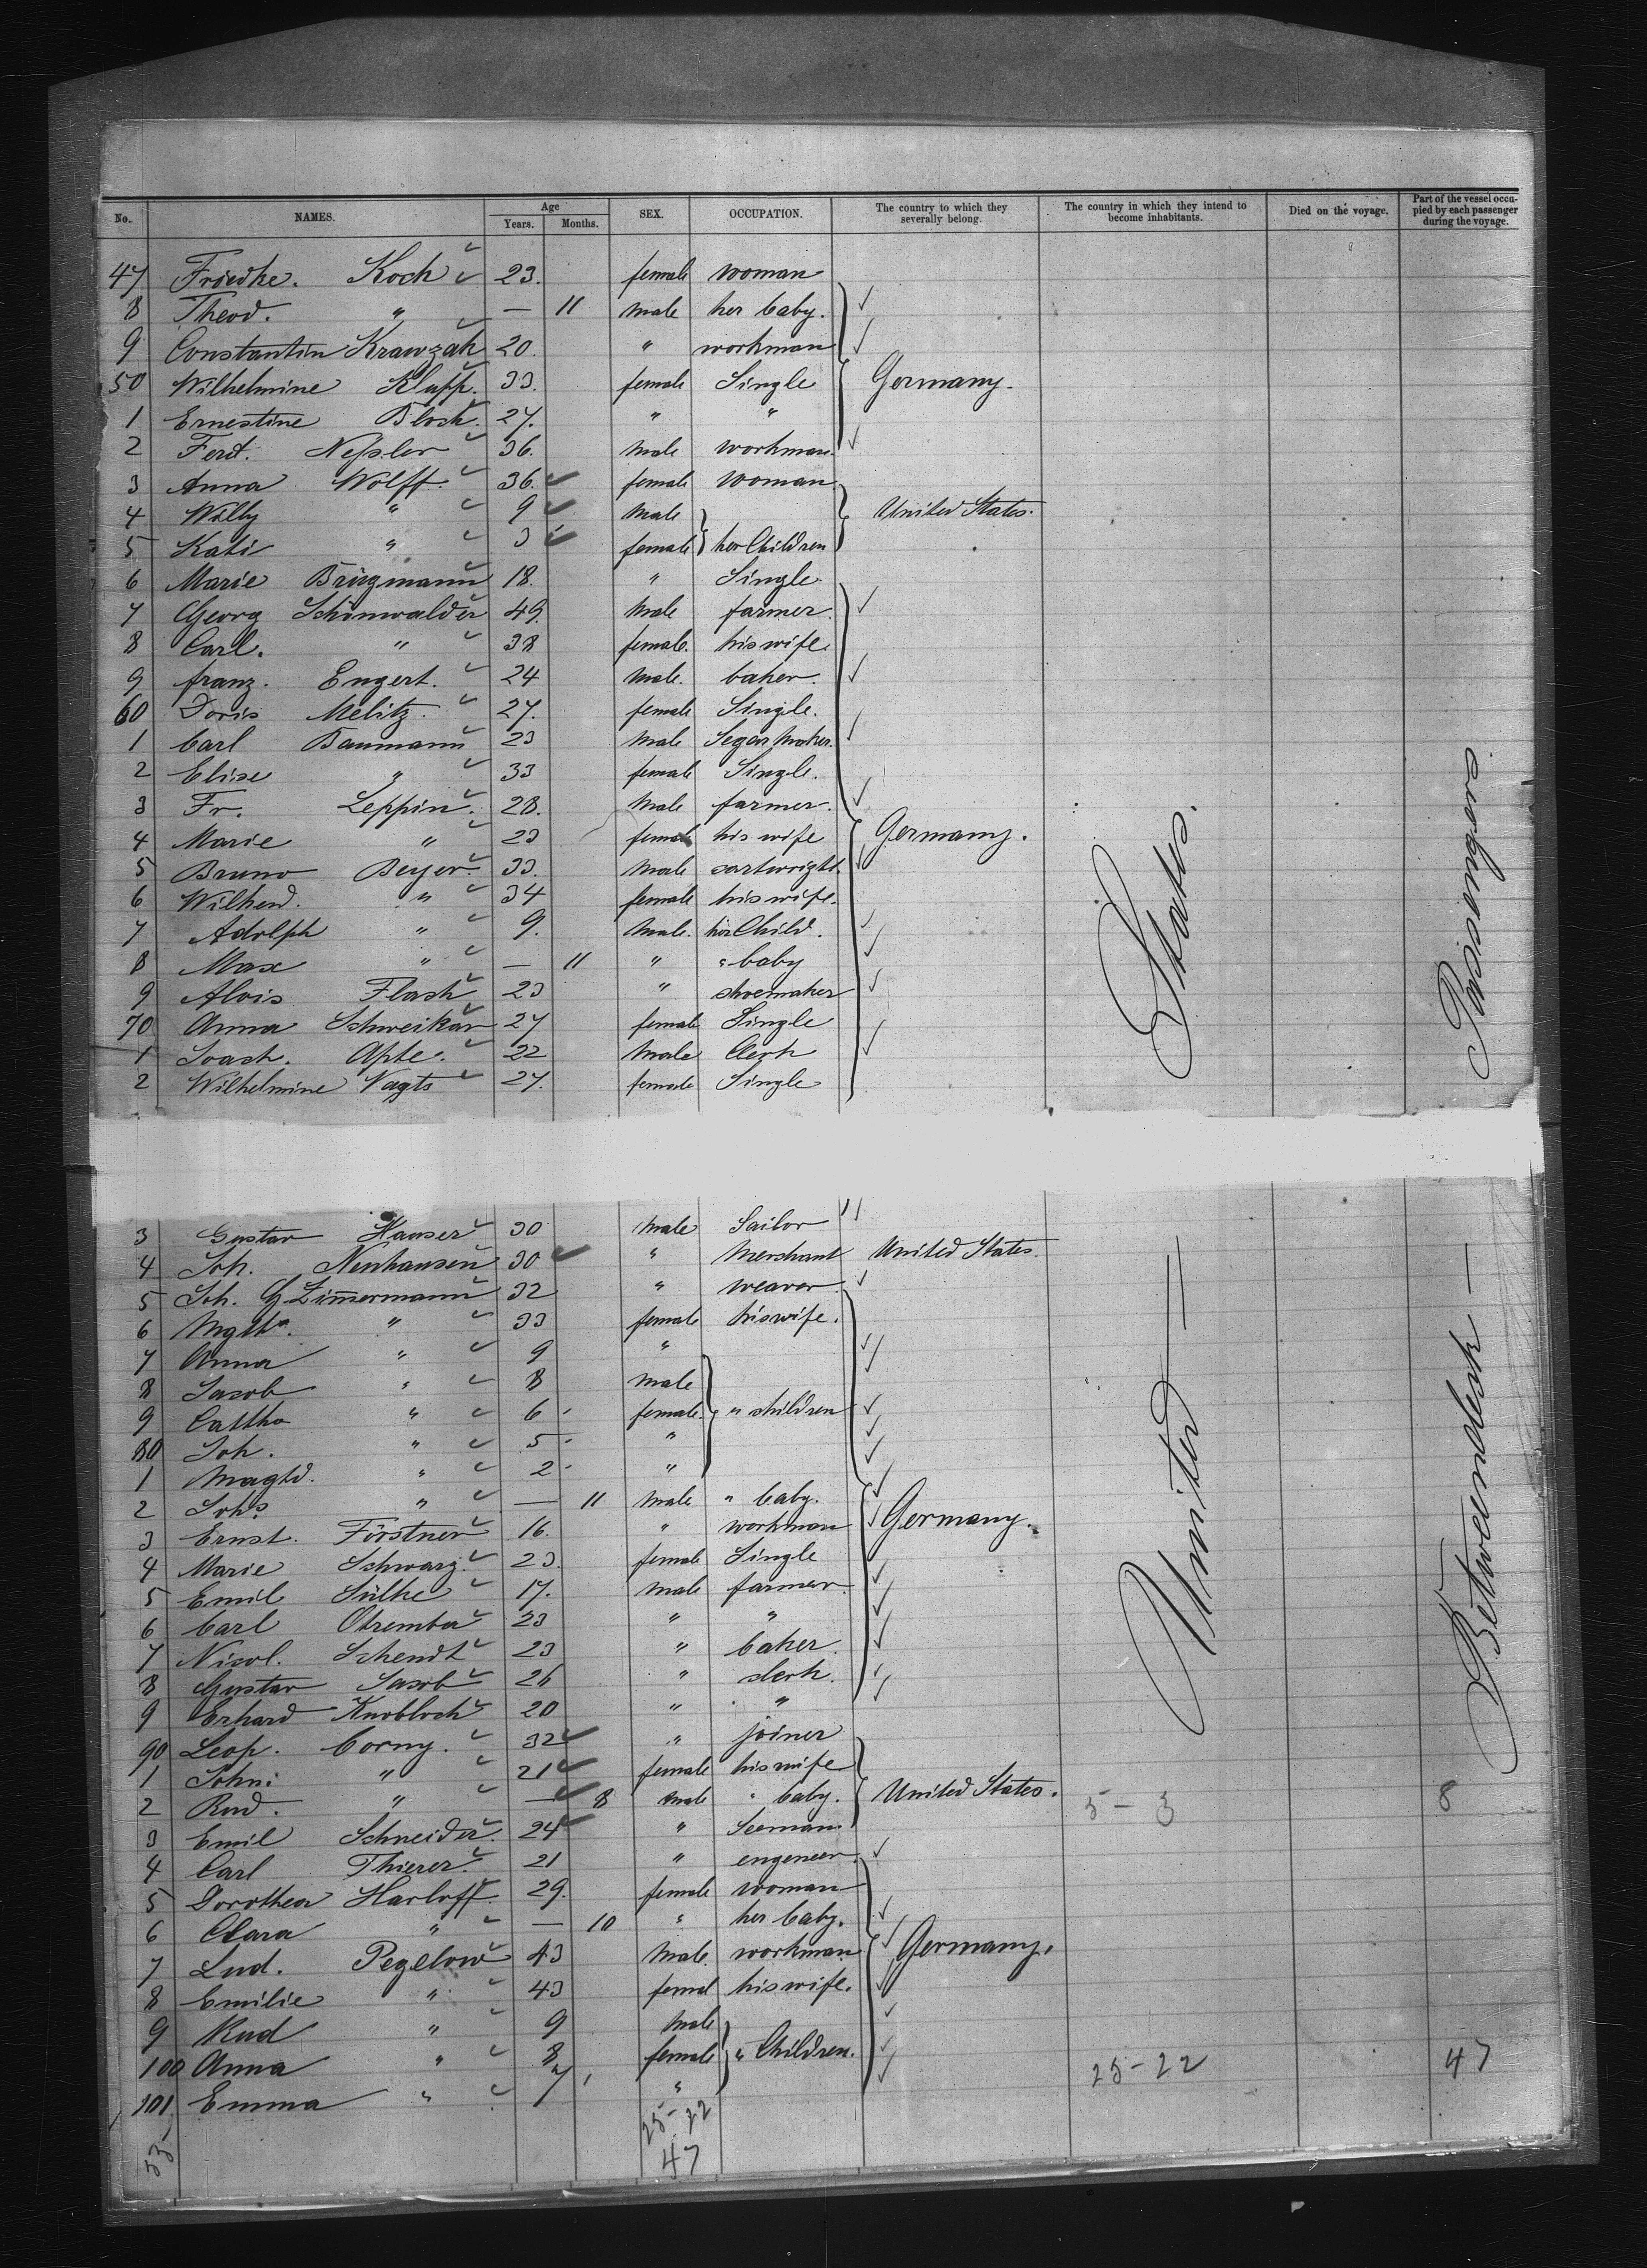 No. NAMES. Age Years. Months. SEX. OCCUPATION. The country to which they severally belong. The country in which they intend to become inhabitants. Died on the voyage. Part of the vessel occupied by each passenger during the voyage.
47 Friedke. Koch 23. female woman
8 Theod. " — 11 male her baby.
9 Constantin Krawzak 20. " workman
50 Wilhelmine Klapp. 33. female Single Germany.
1 Ernestine Bloch. 27. " "
2 Ferd. Neßler 36. male workman.
3 Anna Wolff. 36. female woman
4 Willy " 9 male United States.
5 Kati " 3 female her Children
6 Marie Bringmann 18. " Single.
7 Georg Schönwalder 49. male farmer.
8 Carl. " 38 female. his wife.
9 franz. Engert. 24 male. baker.
60 Doris Melitz. 27. female Single.
1 Carl Baumann 23 male Segar Maker.
2 Elise " 33 female Single.
3 Fr. Leppin. 28. male farmer.
4 Marie " 23 female his wife Germany.
5 Bruno Beyer. 33. male cartwright.
6 Wilhend. " 34 female his wife.
7 Adolph " 9. male. his Child.
8 Max " — 11 " " baby
9 Alois Flash 23 " shoemaker
70 Anna Schweikar 27 female Single
1 Joach. Apte. 22 male Clerk
2 Wilhelmine Vagts 27. female Single
3 Gustav Hauser 30 male Sailor
4 Joh. Neuhausen 30 " Merchant United States.
5 Joh. G. Zimmermann 32 " weaver.
6 Mgtha. " 33 female his wife.
7 Anna " 9 "
8 Jacob " 8 male
9 Cattha " 6 female. " children
80 Joh. " 5 "
1 Magtd. " 2 "
2 Johs. " — 11 male " baby.
3 Ernst. Förstner 16. " workman Germany.
4 Marie Schwarz. 23. female Single
5 Emil Sülke 17. male farmer.
6 Carl Otremba 23 " "
7 Nicol. Schendt 23 " baker.
8 Gustav Jacob 26 " clerk.
9 Erhard Knobloch 20 " "
90 Leop. Corny. 32 " joiner
1 Johni " 21 female his wife
2 Rud. " — 8 male " baby. United States. 5 - 3 8
3 Emil Schneider. 24 " Seeman
4 Carl Thierer. 21 " engeneer.
5 Dorothea Harloff. 29. female woman
6 Clara " — 10 " her baby.
7 Lud. Pegelow 43 male. workman Germany.
8 Emilie " 43 femal his wife.
9 Rud " 9 male
100 Anna " 8 female " Children. 25 - 22 47
101. Emma " 7 "
53 25 - 22
47
United States.
Betweendeck — Passengers